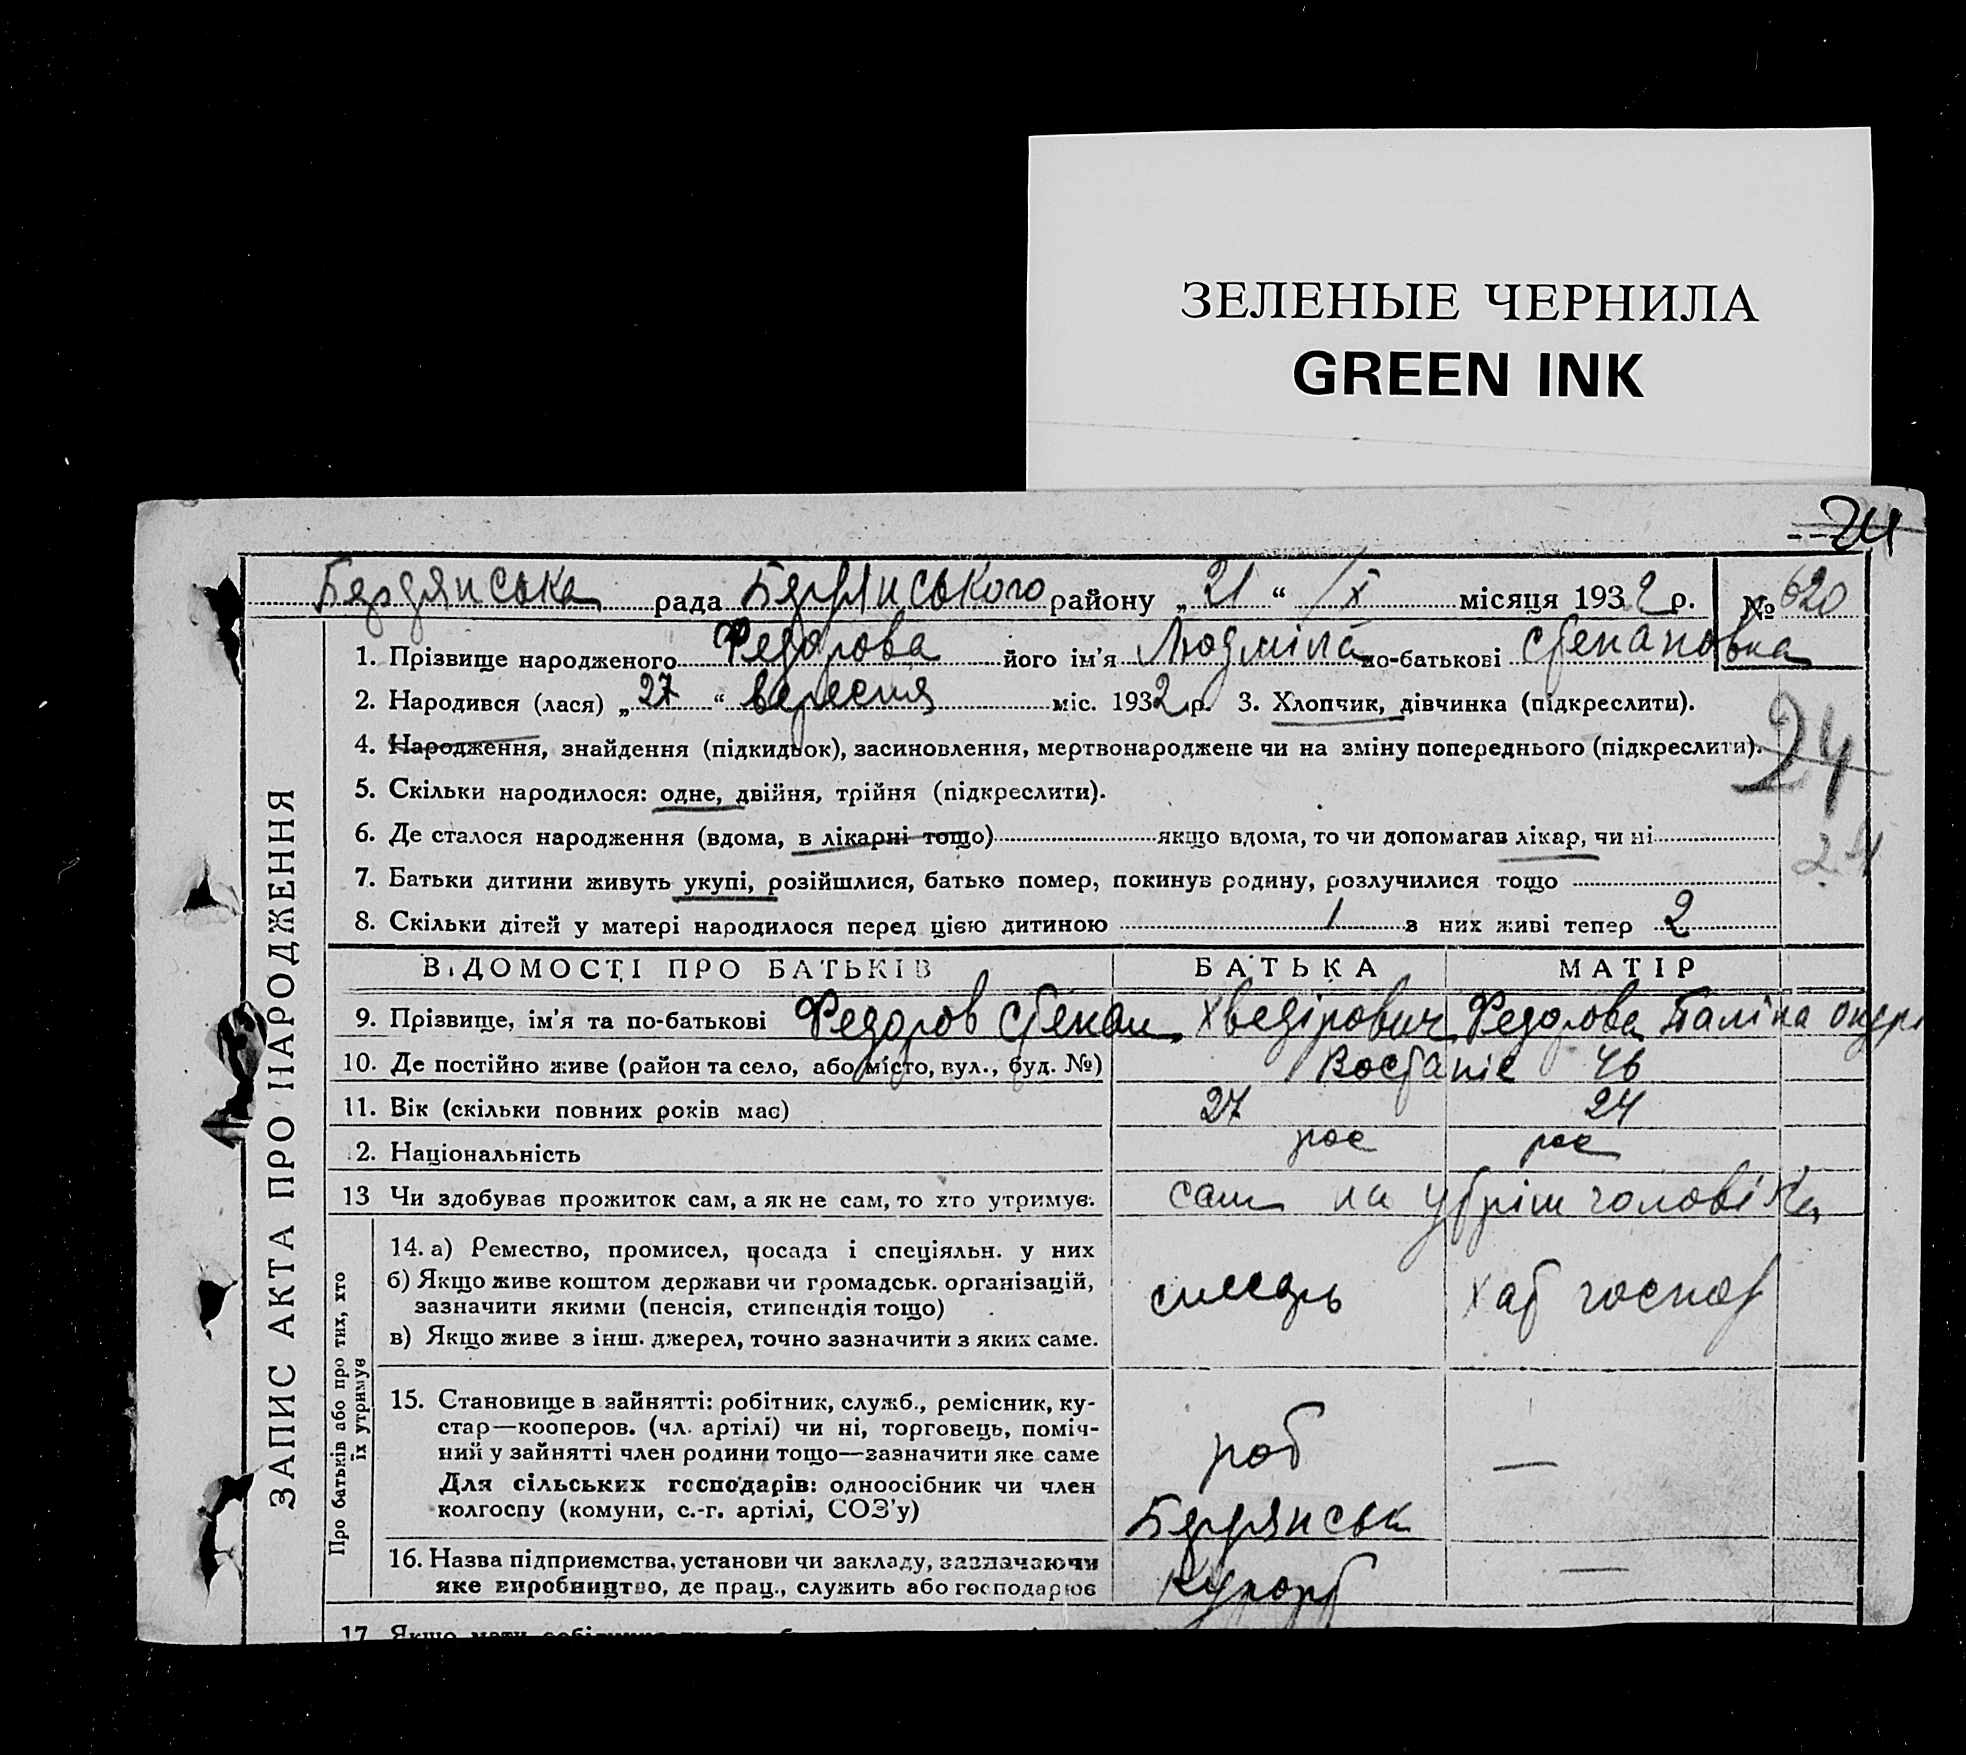 ЗЕЛЕНЫЕ ЧЕРНИЛА
GREEN INK
24
Бердянська рада Бердянського району „ 21 “ /X місяця 1932 р. № 620
ЗАПИС АКТА ПРО НАРОДЖЕННЯ
1. Прізвище народженого Федорова його ім’я Людміла по-батькові Степановна
2. Народився (лася) „ 27 “ вересня міс. 1932 р. 3. Хлопчик, дівчинка (підкреслити).
4. Народження, знайдення (підкидьок), засиновлення, мертвонароджене чи на зміну попереднього (підкреслити).
24
5. Скільки народилося: одне, двійня, трійня (підкреслити).
6. Де сталося народження (вдома, в лікарні тощо) якщо вдома, то чи допомагав лікар, чи ні
24
7. Батьки дитини живуть укупі, розійшлися, батько помер, покинув родину, розлучилися тощо
8. Скільки дітей у матері народилося перед цією дитиною 1 з них живі тепер 2
ВІДОМОСТІ ПРО БАТЬКІВ БАТЬКА МАТІР
9. Прізвище, ім’я та по-батькові Федоров Степан Хведірович Федорова Галіна Андрі
10. Де постійно живе (район та село, або місто, вул., буд. №) Востаніє 46
11. Вік (скільки повних років має) 27 24
12. Національність рос рос
13 Чи здобуває прожиток сам, а як не сам, то хто утримує. сам на утрім чоловіка
Про батьків або про тих, хто
їх утримує
14. а) Ремество, промисел, посада і спеціяльн. у них
б) Якщо живе коштом держави чи громадськ. організацій,
зазначити якими (пенсія, стипендія тощо) слюсарь хат господ
в) Якщо живе з інш. джерел, точно зазначити з яких саме.
15. Становище в зайнятті: робітник, служб., ремісник, ку-
стар—кооперов. (чл. артілі) чи ні, торговець, поміч-
ний у зайнятті член родини тощо—зазначити яке саме роб —
Для сільських господарів: одноосібник чи член
колгоспу (комуни, с.-г. артілі, СОЗ’у) Бердянськ
16. Назва підприємства, установи чи закладу, зазначаючи
яке виробництво, де прац., служить або господарює Курорт —
17